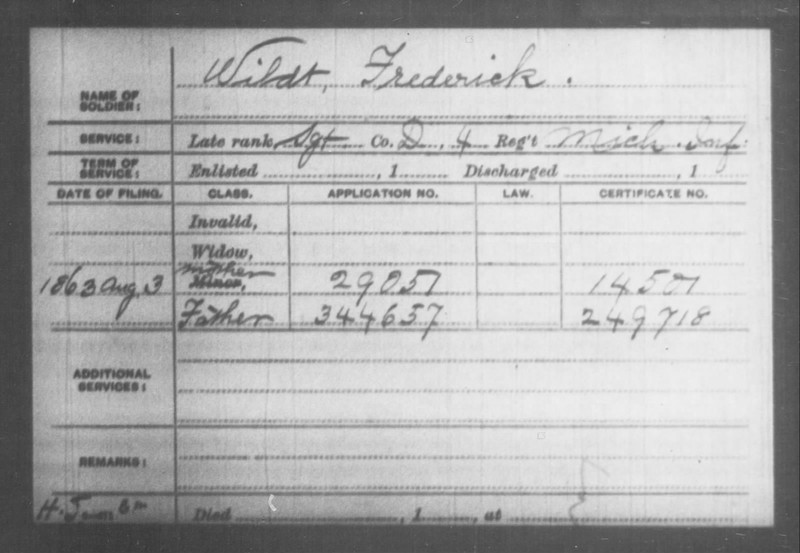 NAME OF SOLDIER: Wildt, Frederick.
SERVICE: Late rank Sgt Co. D, 4 Reg't Mich. Inf.
TERM OF SERVICE: Enlisted , 1 Discharged , 1
DATE OF FILING. CLASS. APPLICATION NO. LAW. CERTIFICATE NO.
Invalid,
Widow,
1863 Aug 3 Mother Minor, 29051 14501
Father 344657 249718
ADDITIONAL SERVICES:
REMARKS:
Died , 1 , at